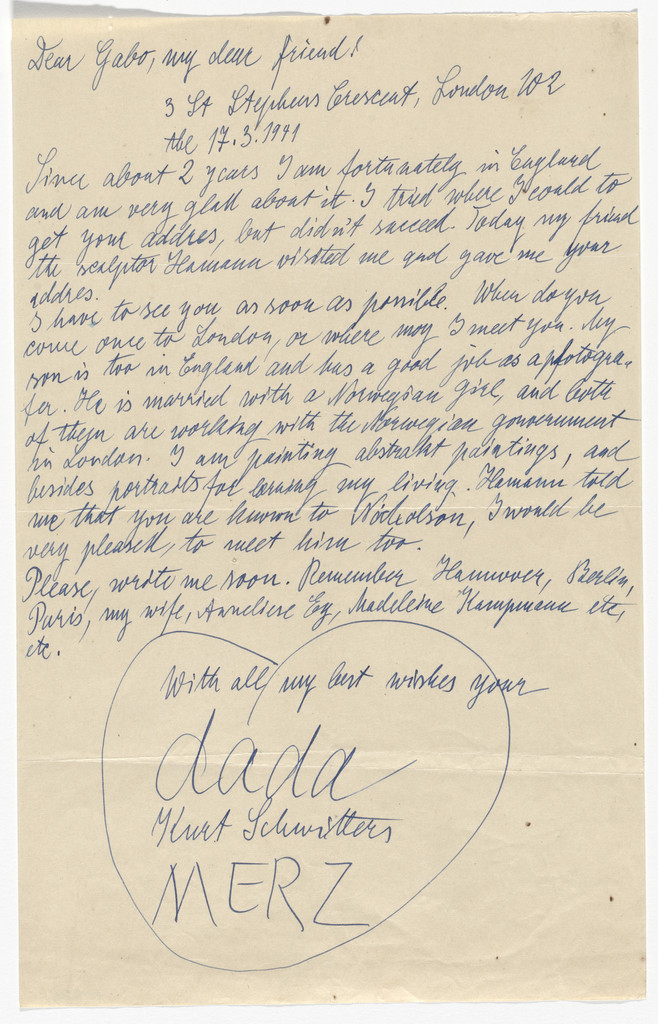 Dear Gabo, my dear friend!
3 St Stephens Crescent, London W2
the 17.3.1941
Since about 2 years I am fortunately in England
and am very glad about it. I tried where I could to
get your addres, but didn't succeed. Today my friend
the sculptor Hamann visited me and gave me your
addres.
I have to see you as soon as possible. When do you
come once to London, or where may I meet you. My
son is too in England and has a good job as a photogra-
fer. He is married with a Norwegian girl, and both
of them are working with the Norwegian government
in London. I am painting abstrakt paintings, and
besides portraits for earning my living. Hamann told
me that you are known to Nicholson, I would be
very pleased, to meet him too.
Please, write me soon. Remember Hannover, Berlin,
Paris, my wife, Anneliese Ey, Madeleine Kampmann etc,
etc.
With all my best wishes your
dada
Kurt Schwitters
MERZ